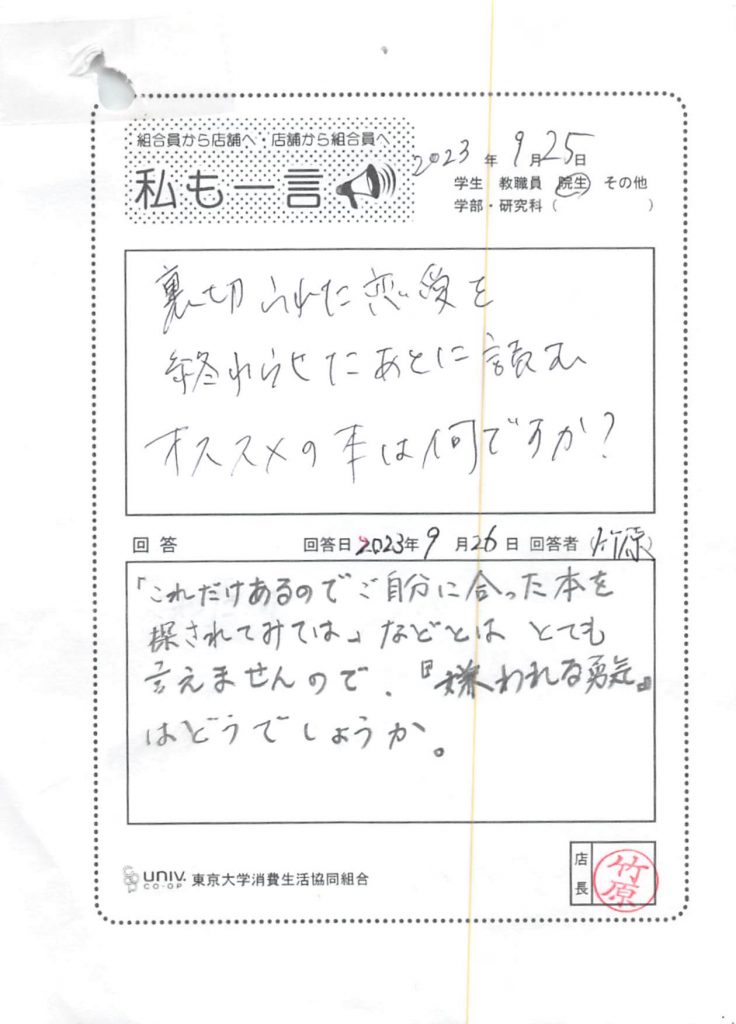 組合員から店舗へ・店舗から組合員へ
私も一言
2023 年 9月25日
学生 教職員 院生 その他
学部・研究科( )
裏切られた恋愛を
終わらせたあとに読む
オススメの本は何ですか?
回答 回答日 2023年9月26日 回答者(竹原)
「これだけあるのでご自分に合った本を
探されてみては」などとは とても
言えませんので、『嫌われる勇気』
はどうでしょうか。
UNIV. CO-OP 東京大学消費生活協同組合
店長 竹原